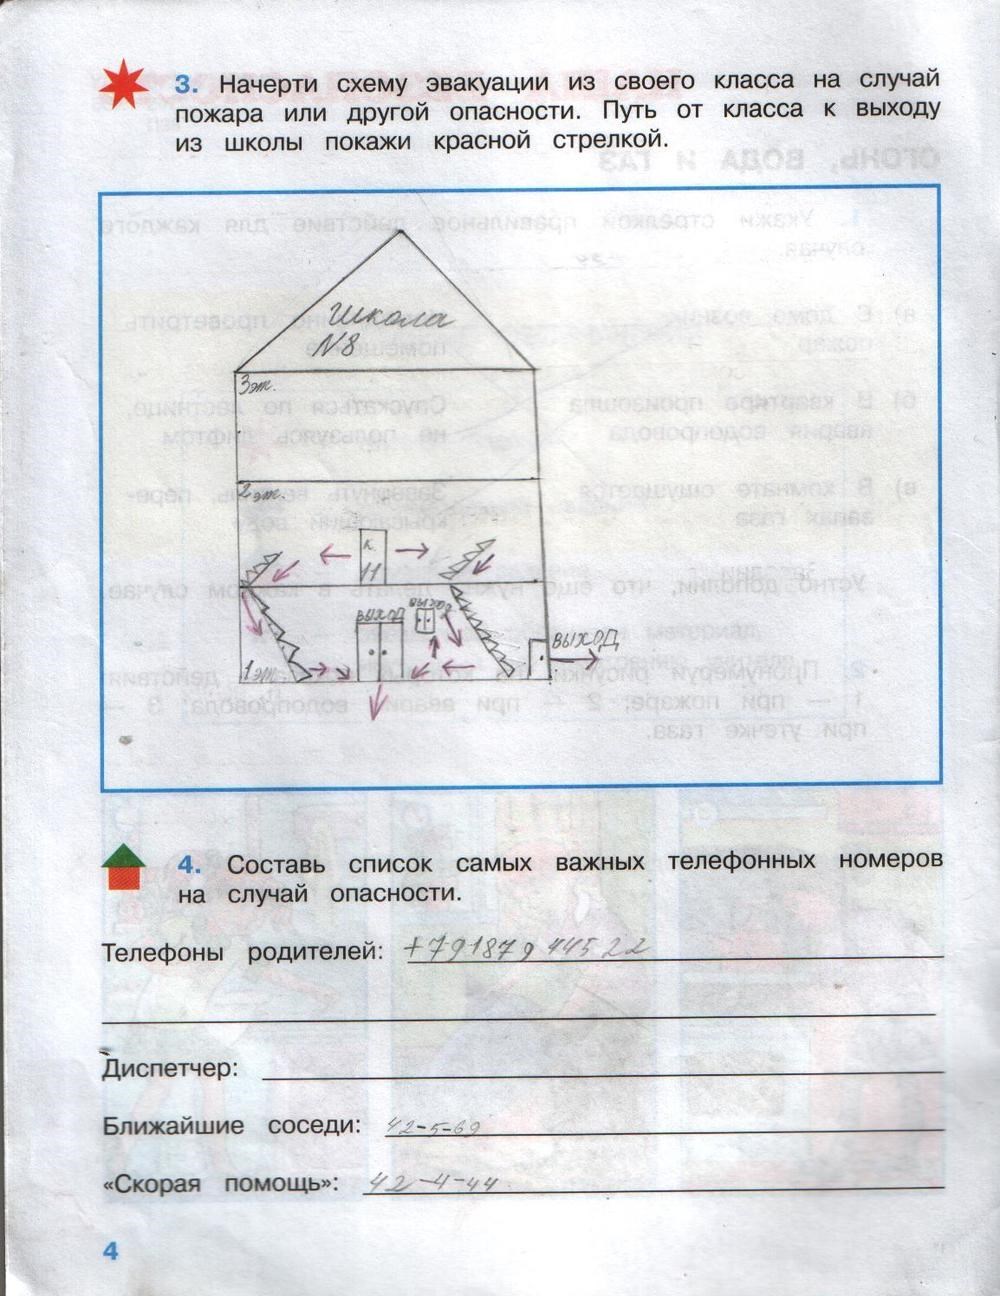 3. Начерти схему эвакуации из своего класса на случай
пожара или другой опасности. Путь от класса к выходу
из школы покажи красной стрелкой.
Школа
N8
3эт.
2эт.
к.
11
ВЫХОД
ВЫХОД
ВЫХОД
1эт.
4. Составь список самых важных телефонных номеров
на случай опасности.
Телефоны родителей: +79187944522
Диспетчер:
Ближайшие соседи: 42-5-69
«Скорая помощь»: 42-4-44
4